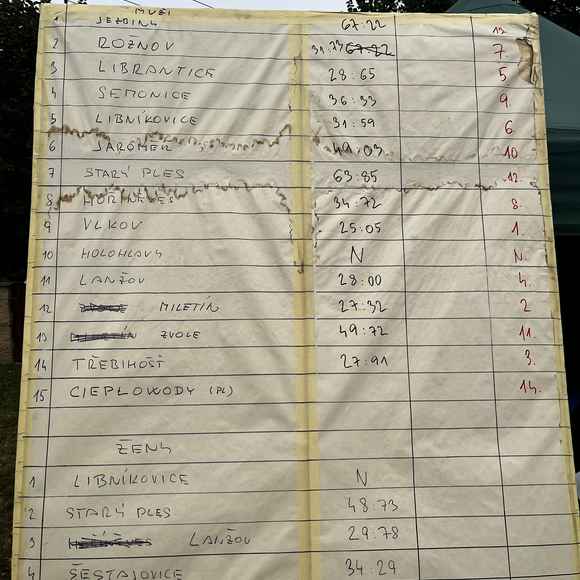 MUŽI
1 JEZBINY 67:22 13.
2 ROŽNOV 31:73 67:22 7.
3 LIBRANTICE 28:65 5
4 SEMONICE 36:33 9.
5 LIBNÍKOVICE 31:59 6.
6 JAROMĚŘ 49:03 10
7 STARÝ PLES 63:85 12.
8 34:72 8.
9 VLKOV 25:05 1.
10 HOLOHLAVY N N.
11 LANŽOV 28:00 4.
12 MILETÍN 27:32 2
13 ZVOLE 49:72 11.
14 TŘEBIHOŠŤ 27:91 3.
15 CIEPŁOWODY (PL) 14.
ŽENY
1 LIBNÍKOVICE N
2 STARÝ PLES 48:73
3 LANŽOV 29:78
4 ŠESTAJOVICE 34:29